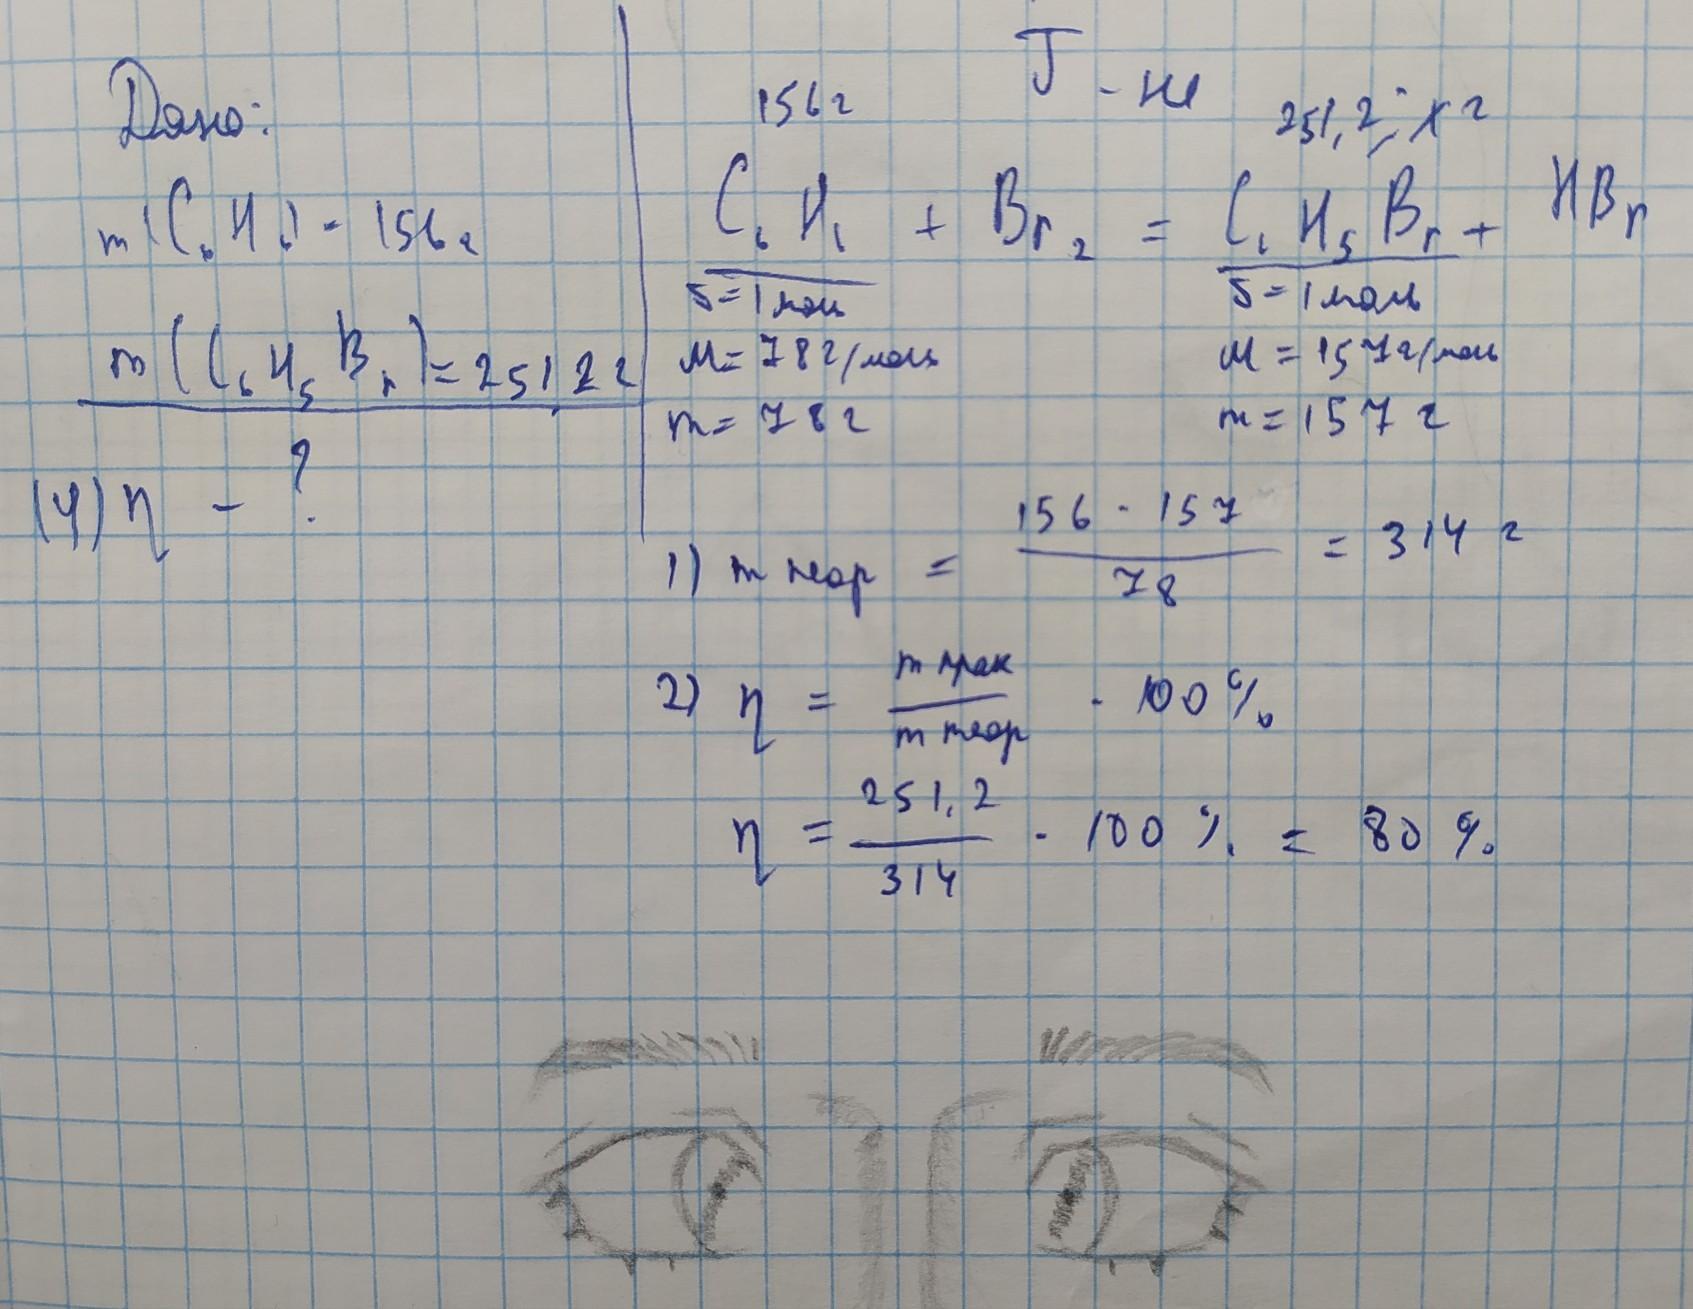 Дано:
m(C₆H₆) - 156г
m(C₆H₅Br) = 251,2г
(Ч) η - ?
156г
251,2; x г
C₆H₆ + Br₂ = C₆H₅Br + HBr
ν = 1 моль
M = 78 г/моль
m = 78 г
ν = 1 моль
M = 157 г/моль
m = 157 г
1) m теор = 156 · 157 / 78 = 314 г
2) η = m прак / m теор · 100%
η = 251,2 / 314 · 100% = 80%